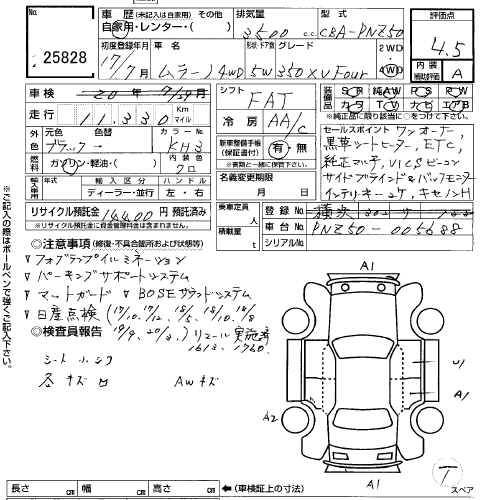 No. 25828
車歴 (未記入は自家用) その他
自家用・レンター・( )
排気量 3500 cc
型式 CBA-PNZ50
評価点 4.5
初度登録年月 17年 7月
車名 ムラーノ 4WD
形状・ドア数 5W
グレード 350XV Four
2WD
4WD
内装 補助評価 A
車検 20年 7/19月
シフト FAT
装備品 SR AW PS PW
カワ TV ナビ エアB
※純正品に限り該当に○をつけて下さい。
走行 11,330 Km マイル
冷房 AA/C
セールスポイント ワンオーナー,
黒革シートヒーター, ETC,
純正マルチ, VICSビーコン
サイドブラインド&バックモニター
インテリキー2ケ, キセノンH
外色 元色 ブラック→ 色替
カラーNo. KH3
燃料 ガソリン・軽油・( )
内装色 クロ
新車整備手帳 (保証書付) 有・無
※書類と一緒に保管下さい。
輸入車用 年式 輸入区分 ハンドル
ディーラー・並行 左・右
名義変更期限 月 日
リサイクル預託金 14400 円 預託済み
※リサイクル預託金に資金管理料金は含まれません。
乗車定員 人
積載量 t
登録No.
車台No. PNZ50-005688
シリアルNo.
◎注意事項 (修復・不具合箇所および状態等)
▽フォグランプイルミネーション
▽パーキングサポートシステム
▽マッドガード ▽BOSEサウンドシステム
▽日産点検 (17/10, 17/12, 18/5, 18/10, 18/8
19/9, 20/3.) リコール実施済
1613, 1760.
◎検査員報告
シート
各キズ AWキズ
A1
A2
A1
A1
T スペア
長さ cm 幅 cm 高さ cm ←(車検証上の寸法)
※ご記入の際はボールペンで強くご記入下さい。